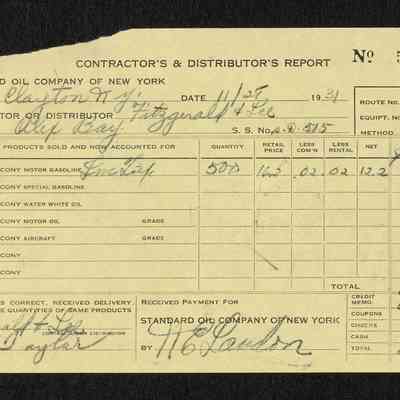 CONTRACTOR'S & DISTRIBUTOR'S REPORT No 5
D OIL COMPANY OF NEW YORK
Clayton N.Y. DATE 11/28 1931
ROUTE NO.
TOR OR DISTRIBUTOR Fitzgerald & Lee
EQUIPT. NO.
Alex Bay S. S. No. 515
METHOD
PRODUCTS SOLD AND NOW ACCOUNTED FOR QUANTITY RETAIL PRICE LESS COM'N LESS RENTAL NET
CONY MOTOR GASOLINE 500 16.2 .02 .02 12.2
CONY SPECIAL GASOLINE
CONY WATER WHITE OIL
CONY MOTOR OIL GRADE
CONY AIRCRAFT GRADE
CONY
CONY
TOTAL
S CORRECT, RECEIVED DELIVERY
E QUANTITIES OF SAME PRODUCTS
RECEIVED PAYMENT FOR
STANDARD OIL COMPANY OF NEW YORK
CREDIT MEMO.
COUPONS
CHECKS
CASH
TOTAL
& Lee
DISTRIBUTOR
Taylor
BY H E Landon